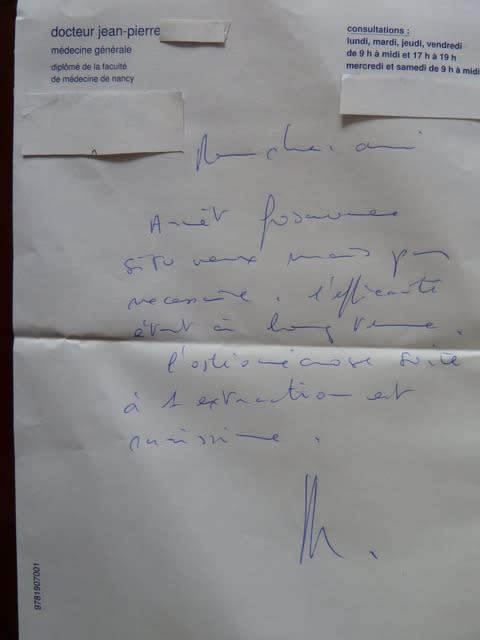 docteur jean-pierre
médecine générale
diplômé de la faculté
de médecine de nancy
consultations :
lundi, mardi, jeudi, vendredi
de 9 h à midi et 17 h à 19 h
mercredi et samedi de 9 h à midi
Mon cher ami
Arrêt fosavance
si tu veux mais pas
necessaire. l'efficacité
étant à long terme.
l'ostéonécrose suite
à 1 extraction est
rarissime.
9781907001